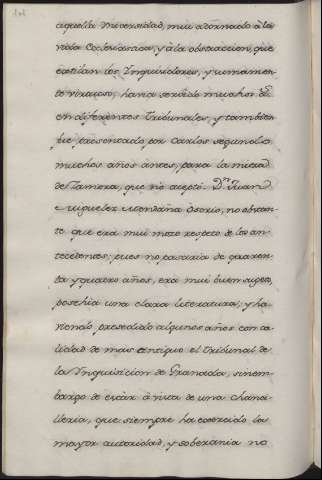 aquella Universidad, mui adornado à la
vida Eclesiastica, y à la abstraccion, que
estilan los Inquisidores, y sumamen-
te virtuoso; havia servido muchos a.s
en diferentes Tribunales, y tambien
fue presentado por Carlos segundo
muchos años àntes, para la mitra
de Zamora, que no aceptò. D.n Juan
Miguelez Mendaña Osorio, no obstan-
te que era mui mozo respeto de los an-
tecedentes; pues no pasaria de quaren-
ta y quatro años, era mui buen sugeto,
posehia una clara literatura; y ha-
viendo presedido algunos años con ca-
lidad de mas antiguo el Tribunal de
la Ynquisicion de Granada, sinem-
bargo de estàr à vista de una chanci-
lleria, que siempre ha exercido la
mayor autoridad, y soberanìa no